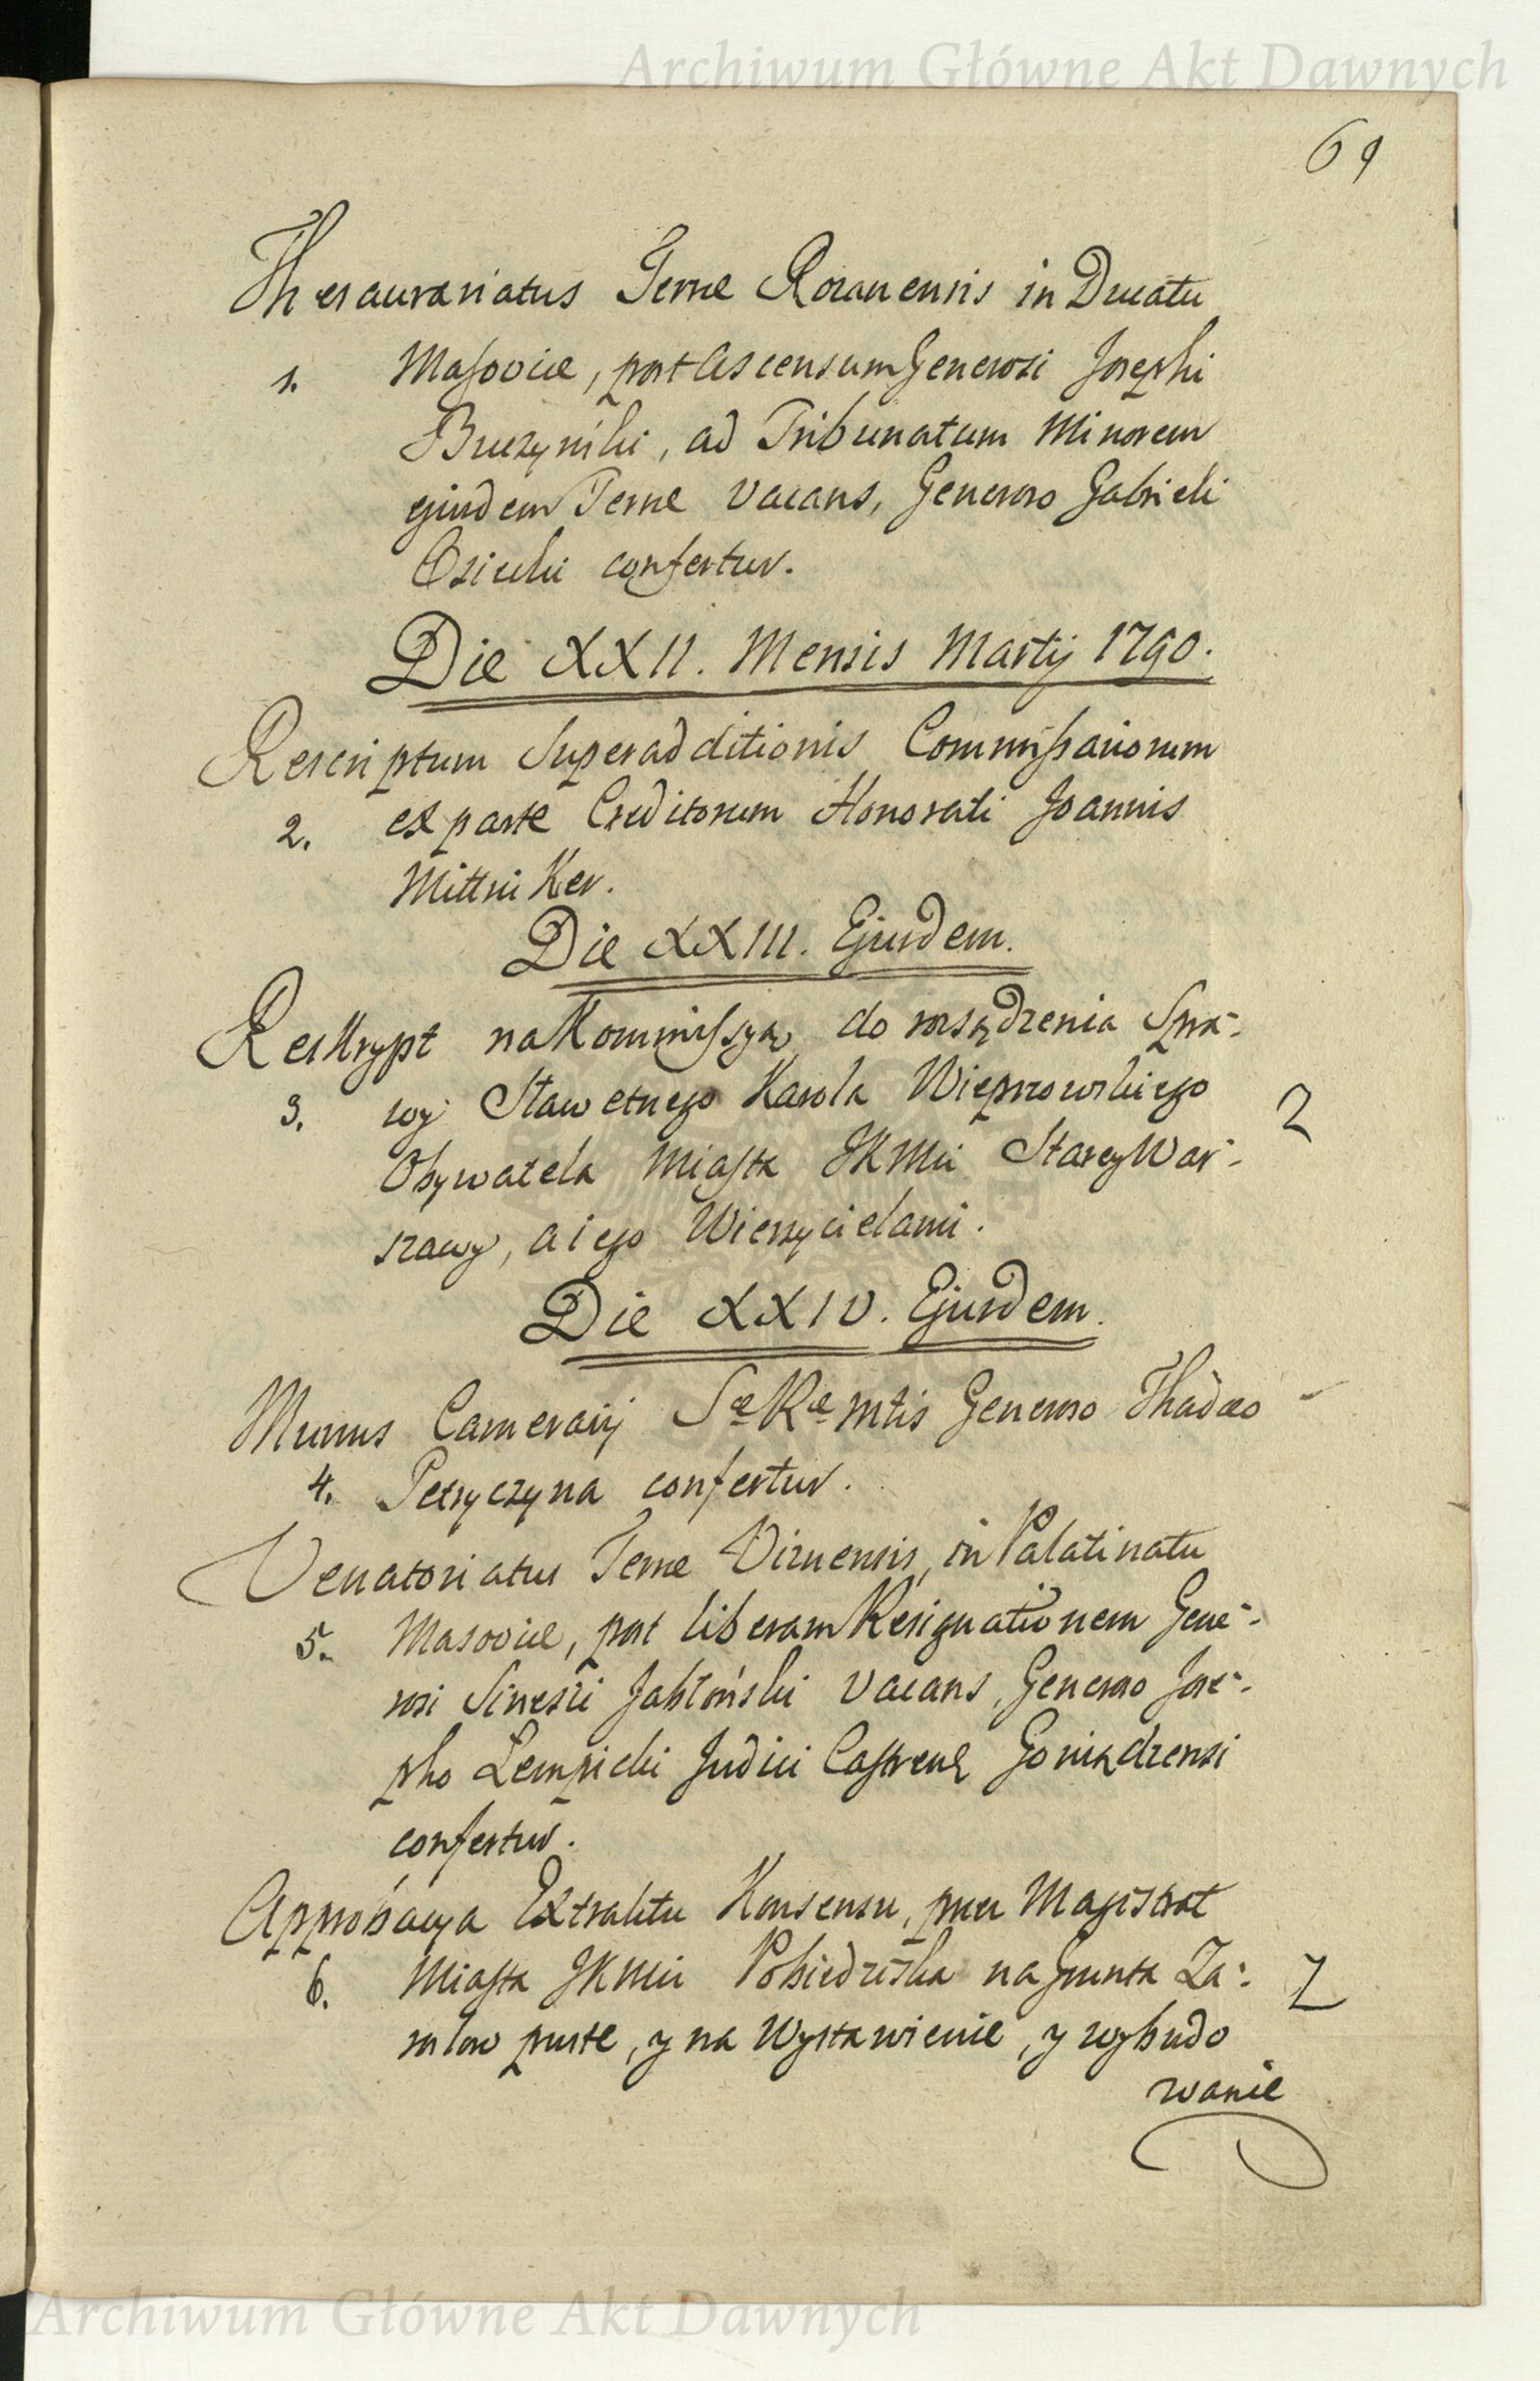 Archiwum Główne Akt Dawnych
69
Thesaurariatus Terræ Rozanensis in Ducatu
1. Masoviæ, post Ascensum Generosi Josephi
Buczyński, ad Tribunatum Minorem
ejusdem Terræ vacans, Generoso Gabrieli
Osiecki confertur.
Die XXII. Mensis Martij 1790.
Rescriptum Superadditionis Commissariorum
2. ex parte Creditorum Honorati Joannis
Mittniker.
Die XXIII. Ejusdem.
Reskrypt na Kommissyą do rozsądzenia Spra-
3. wy Sławetnego Karola Wieprzowskiego
Obywatela Miasta JKMci Starey War-
szawy, a iego Wierzycielami.
Die XXIV. Ejusdem.
Munus Camerarij Sæ Ræ Mtis Generoso Thadæo
4. Petryczyna confertur.
Venatoriatus Terræ Viznensis, in Palatinatu
5. Masoviæ, post liberam Resignationem Gene-
rosi Jabłoński vacans, Generoso Jose-
pho Łempicki Judici Castren Goniądzensi
confertur.
Approbacya Extraktu Konsensu, przez Magistrat
6. Miasta JKMci Pobiedziska na Grunta Za-
rosłow puste, y na Wystawienie, y wybudo
wanie
Archiwum Główne Akt Dawnych